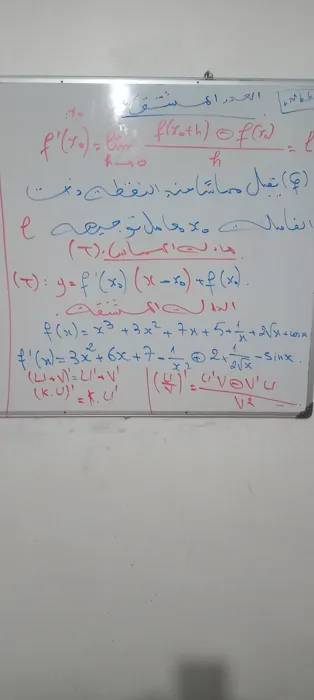 العدد المشتق
x₀
f'(x₀) = lim h→0 f(x₀+h) ⊖ f(x₀) / h = ℓ
(ℓ) يقبل مماسا عند النقطة ذات
الفاصلة x₀ معامل توجيهه ℓ
معادلة المماس (T)
(T): y = f'(x₀) (x - x₀) + f(x₀).
الدالة المشتقة
f(x) = x³ + 3x² + 7x + 5 + 1/x + 2√x + cosx
f'(x) = 3x² + 6x + 7 - 1/x² ⊕ 2 × 1/2√x - sinx.
(U+V)' = U' + V'
(K.U)' = K.U'
(U/V)' = U'V ⊖ V'U / V²